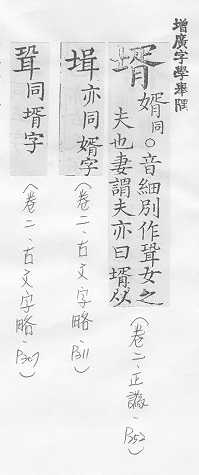 增廣字學舉隅
壻
婿同○音細別作聟女之
夫也妻謂夫亦曰壻以
(卷二、正譌、P252)
堉亦同婿字
(卷二、古文字略、P311)
聟同壻字
(卷二、古文字略、P307)